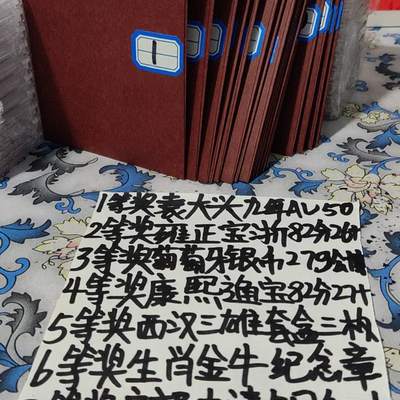 1
1等奖袁大头九年AU50
2等奖雍正宝浙82分26
3等奖葡萄牙银币279公
4等奖康熙渔宝82分27
5等奖西汉三雄套盒三枚
6等奖生肖金牛纪念章